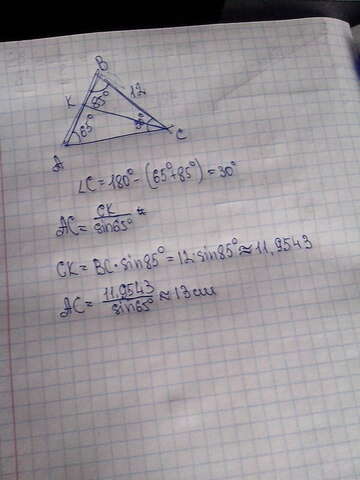 B
12
K
85°
30°
65°
C
A
∠C = 180° - (65° + 85°) = 30°
AC = CK / sin65°
CK = BC · sin85° = 12 · sin85° ≈ 11,9543
AC = 11,9543 / sin65° ≈ 13 см